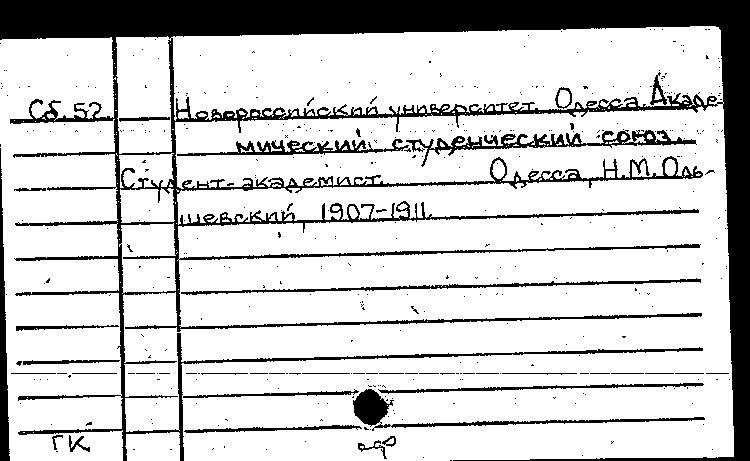 Сб. 52. Новороссийский университет. Одесса. Акаде-
мический студенческий союз.
Студент-академист. Одесса, Н.М. Оль-
шевский, 1907-1911.
ГК